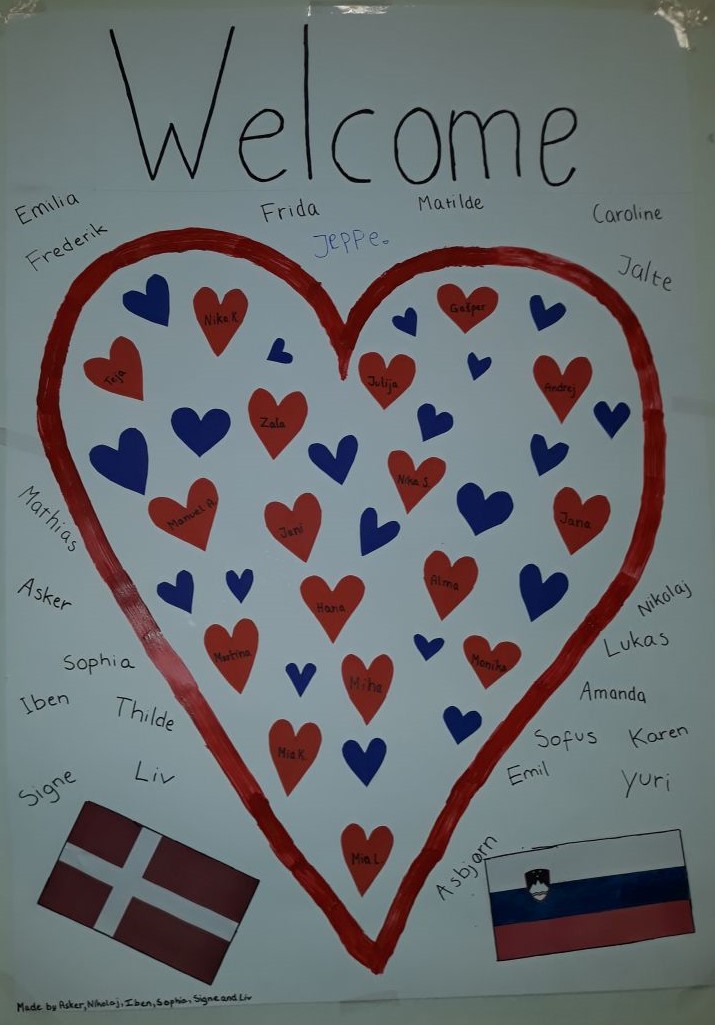 Welcome
Emilia
Frida
Matilde
Caroline
Frederik
Jeppe.
Jalte
Nika K.
Gašper
Teja
Julija
Andrej
Zala
Nika S.
Manuel A.
Jani
Jana
Mathias
Alma
Asker
Hana
Nikolaj
Martina
Monika
Lukas
Sophia
Miha
Iben
Thilde
Amanda
Mia K.
Sofus
Karen
Signe
Liv
Emil
Yuri
Mia L.
Asbjørn
Made by Asker, Nikolaj, Iben, Sophia, Signe and Liv